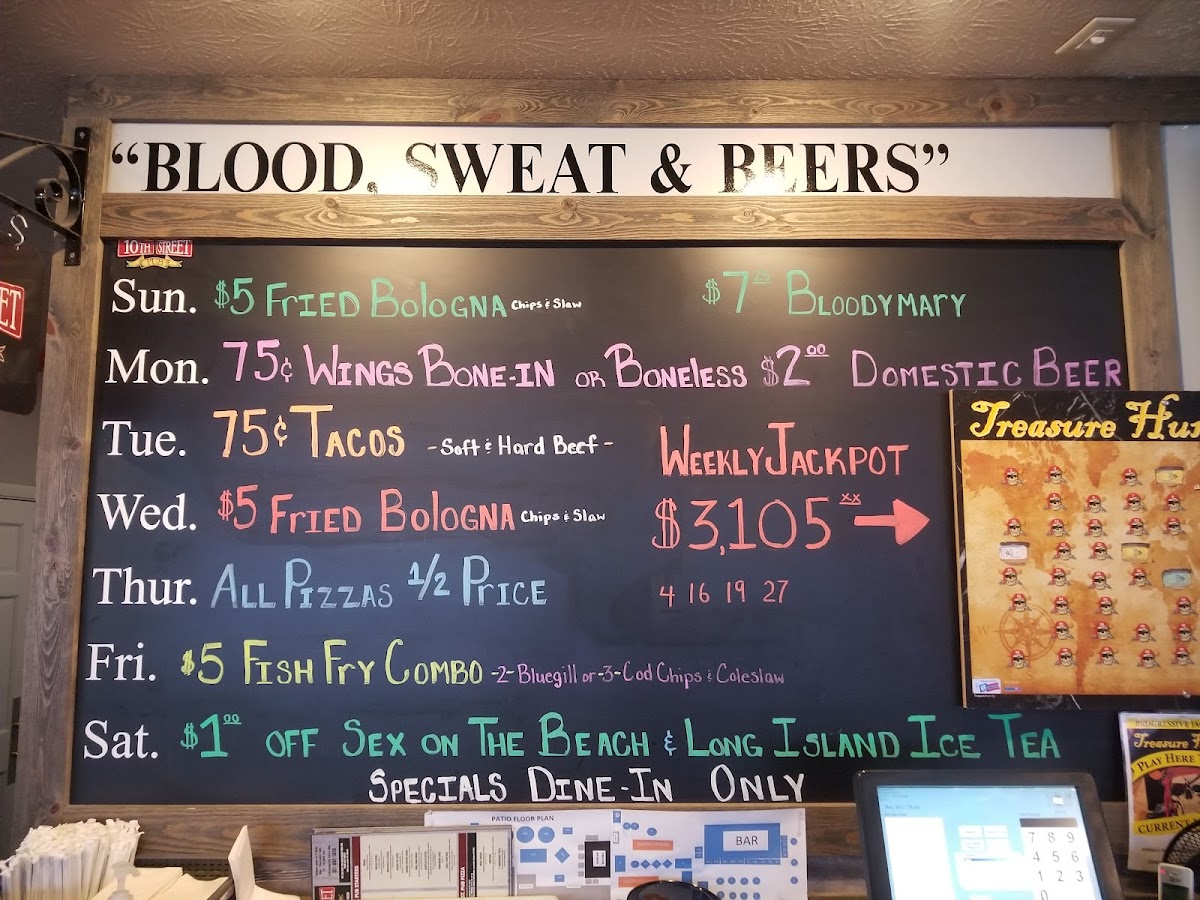 “BLOOD, SWEAT & BEERS”
10TH STREET
PUB
Sun. $5 FRIED BOLOGNA Chips & Slaw $7.25 BLOODYMARY
Mon. 75¢ WINGS BONE-IN OR BONELESS $2.00 DOMESTIC BEER
Tue. 75¢ TACOS -Soft & Hard Beef-
WEEKLY JACKPOT
Wed. $5 FRIED BOLOGNA Chips & Slaw
$3,105.xx
Thur. ALL PIZZAS 1/2 PRICE
4 16 19 27
Fri. $5 FISH FRY COMBO -2-Bluegill or -3-Cod Chips & Coleslaw
Sat. $1.00 OFF SEX ON THE BEACH & LONG ISLAND ICE TEA
SPECIALS DINE-IN ONLY
Treasure Hun
PROGRESSIVE
Treasure
PLAY HERE
CURRENT
PATIO FLOOR PLAN
BAR
7 8 9
4 5 6
1 2 3
0
ET